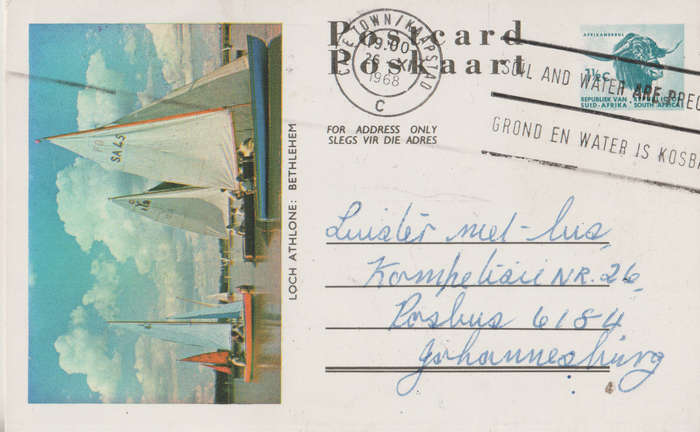 Postcard
Poskaart
FOR ADDRESS ONLY
SLEGS VIR DIE ADRES
CAPE TOWN/KAAPSTAD
19.00
26 IX
1968
C
AFRIKANERBUL
1½c
REPUBLIEK VAN
SUID-AFRIKA SOUTH AFRICA
SOIL AND WATER ARE PREC
GROND EN WATER IS KOSBA
LOCH ATHLONE: BETHLEHEM
SA 45
Luister met-lus,
Kompetisie NR. 26,
Posbus 6184
Johannesburg